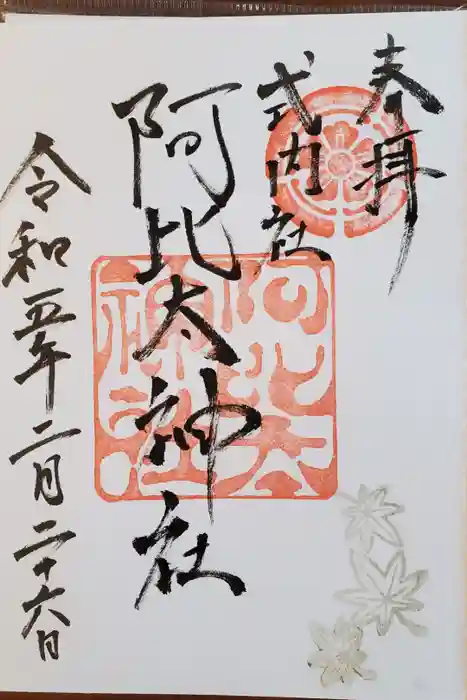 奉拝
式内社
阿比太神社
令和五年二月二十六日
阿比太神社